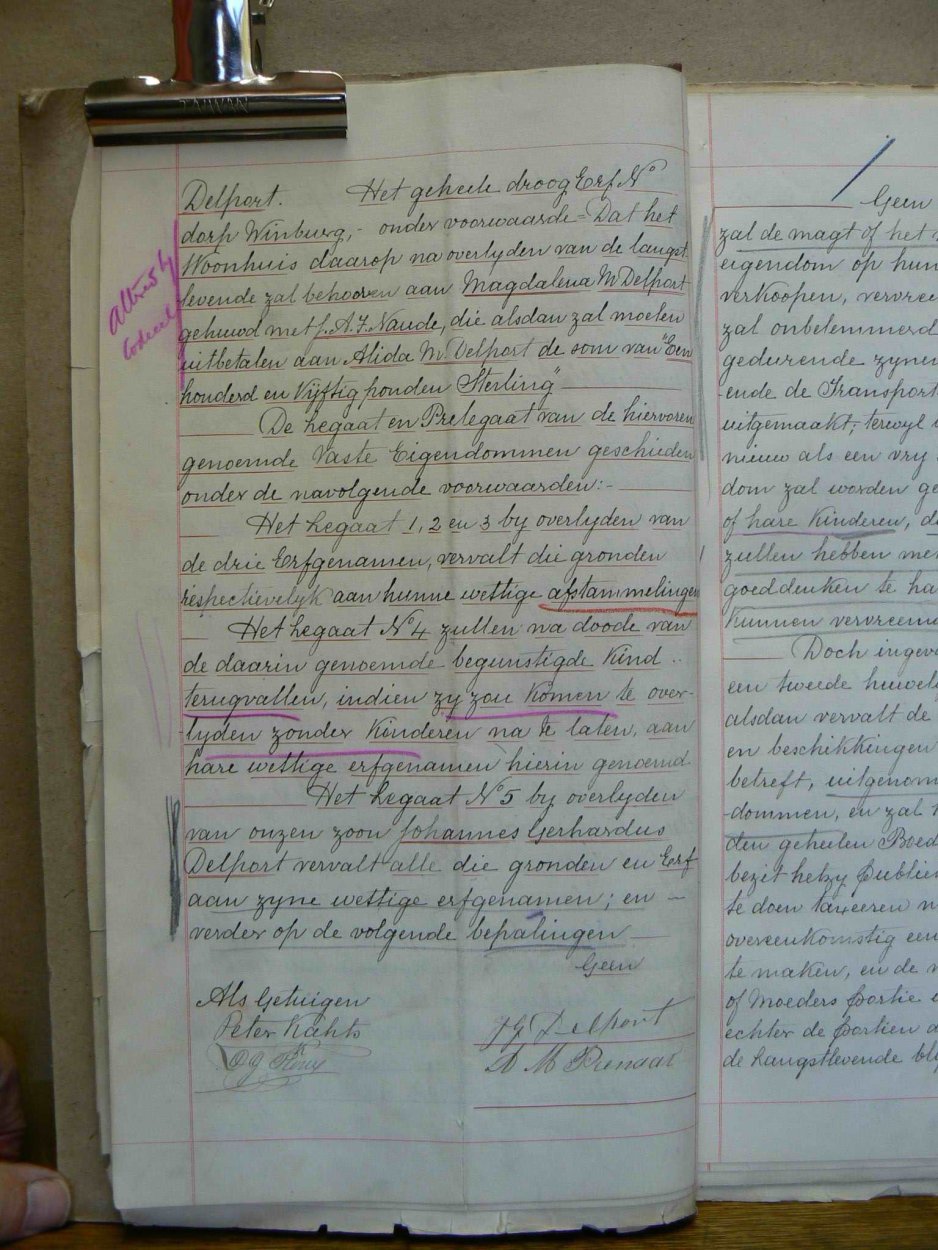 TAIWAN
Delport. Het geheele droog Erf No
dorp Winburg,- onder voorwaarde = Dat het
Woonhuis daarop na overlyden van de langst
levende zal behooren aan Magdalena M Delport
gehuwd met J. A. F. Naude, die alsdan zal moeten
uitbetalen aan Alida M. Delport de som van "Een
honderd en Vijftig ponden Sterling"
De Legaat en Prelegaat van de hiervoren
genoemde Vaste Eigendommen geschieden
onder de navolgende voorwaarden:-
Het Legaat 1, 2 en 3 by overlyden van
de drie Erfgenamen, vervalt die gronden
respectievelyk aan hunne wettige afstammelingen
Het Legaat No 4 zullen na doode van
de daarin genoemde begunstigde Kind..
terugvallen, indien zy zou Komen te over-
lyden zonder Kinderen na te laten, aan
hare wettige erfgenamen hierin genoemd
Het Legaat No 5 by overlyden
van onzen zoon Johannes Gerhardus
Delport vervalt alle die gronden en Erf
aan zyne wettige erfgenamen; en —
verder op de volgende bepalingen
Geen
Als Getuigen
Peter Kahts
J G Delport
A M Prensar
Altred by
Codicil
Geen
zal de magt of het
eigendom op hun
verkoopen, vervree
zal onbelemmerd
gedurende zyne
ende de Transport
uitgemaakt, terwyl
nieuw als een vry
dom zal worden ge
of hare Kinderen, d
zullen hebben me
goeddunken te ha
Kunnen vervreem
Doch ingev
een tweede huwel
alsdan vervalt de
en beschikkingen
betreft, uitgenom
dommen, en zal
den geheelen Boed
bezit hetzy publie
te doen taxeeren
overeenkomstig een
te maken, en de
of Moeders portie
echter de portien
de Langstlevende bly